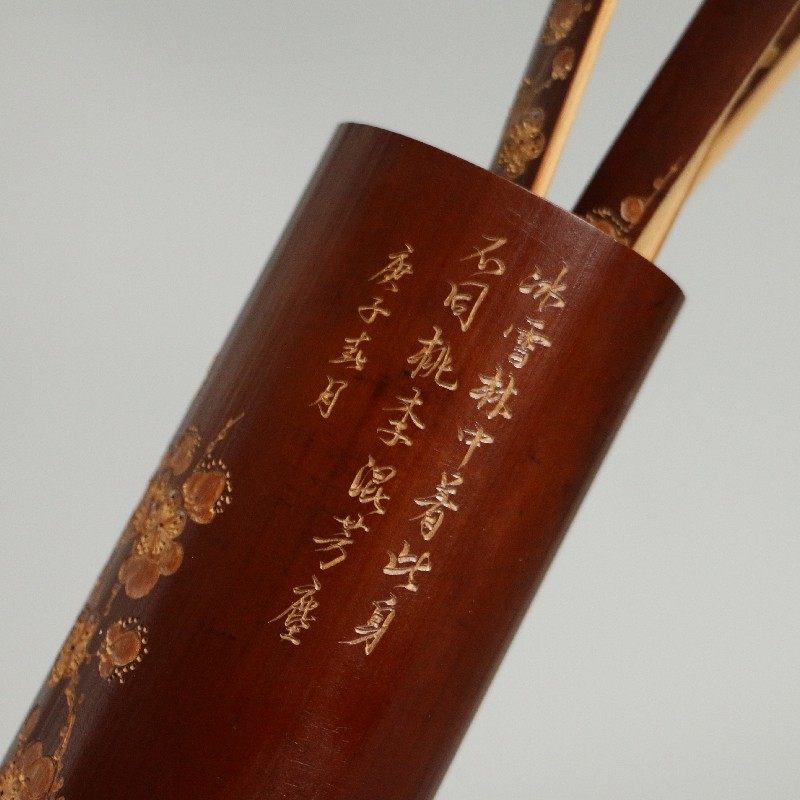 冰雪林中着此身
不同桃李混芳塵
庚子春月